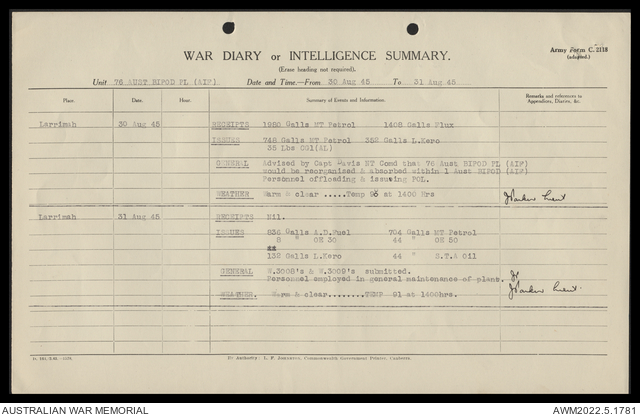 Army Form C. 2118
(adapted.)
WAR DIARY or INTELLIGENCE SUMMARY.
(Erase heading not required).
Unit 76 AUST BIPOD PL (AIF) Date and Time.—From 30 Aug 45 To 31 Aug 45
Place. Date. Hour. Summary of Events and Information. Remarks and references to
Appendices, Diaries, &c.
Larrimah 30 Aug 45 RECEIPTS 1980 Galls MT Petrol 1408 Galls Flux
ISSUES 748 Galls MT Petrol 352 Galls L.Kero
35 Lbs
GENERAL Advised by Capt Davis NT Comd that 76 Aust BIPOD PL (AIF)
would be reorganised & absorbed within 1 Aust BIPOD (AIF)
Personnel offloading & issueing POL.
WEATHER Warm & clear .....Temp 93 at 1400 Hrs Lieut
Larrimah 31 Aug 45 RECEIPTS Nil.
ISSUES 836 Galls A.D.Fuel 704 Galls MT Petrol
8 " OE 30 44 " OE 50
132 Galls L.Kero 44 " S.T.A Oil
GENERAL W.3008's & W.3009's submitted.
Personnel employed in general maintenance of plant.
WEATHER. Warm & clear........TEMP 91 at 1400hrs. Lieut.
By Authority: L. F. Johnston, Commonwealth Government Printer, Canberra.
AUSTRALIAN WAR MEMORIAL AWM2022.5.1781